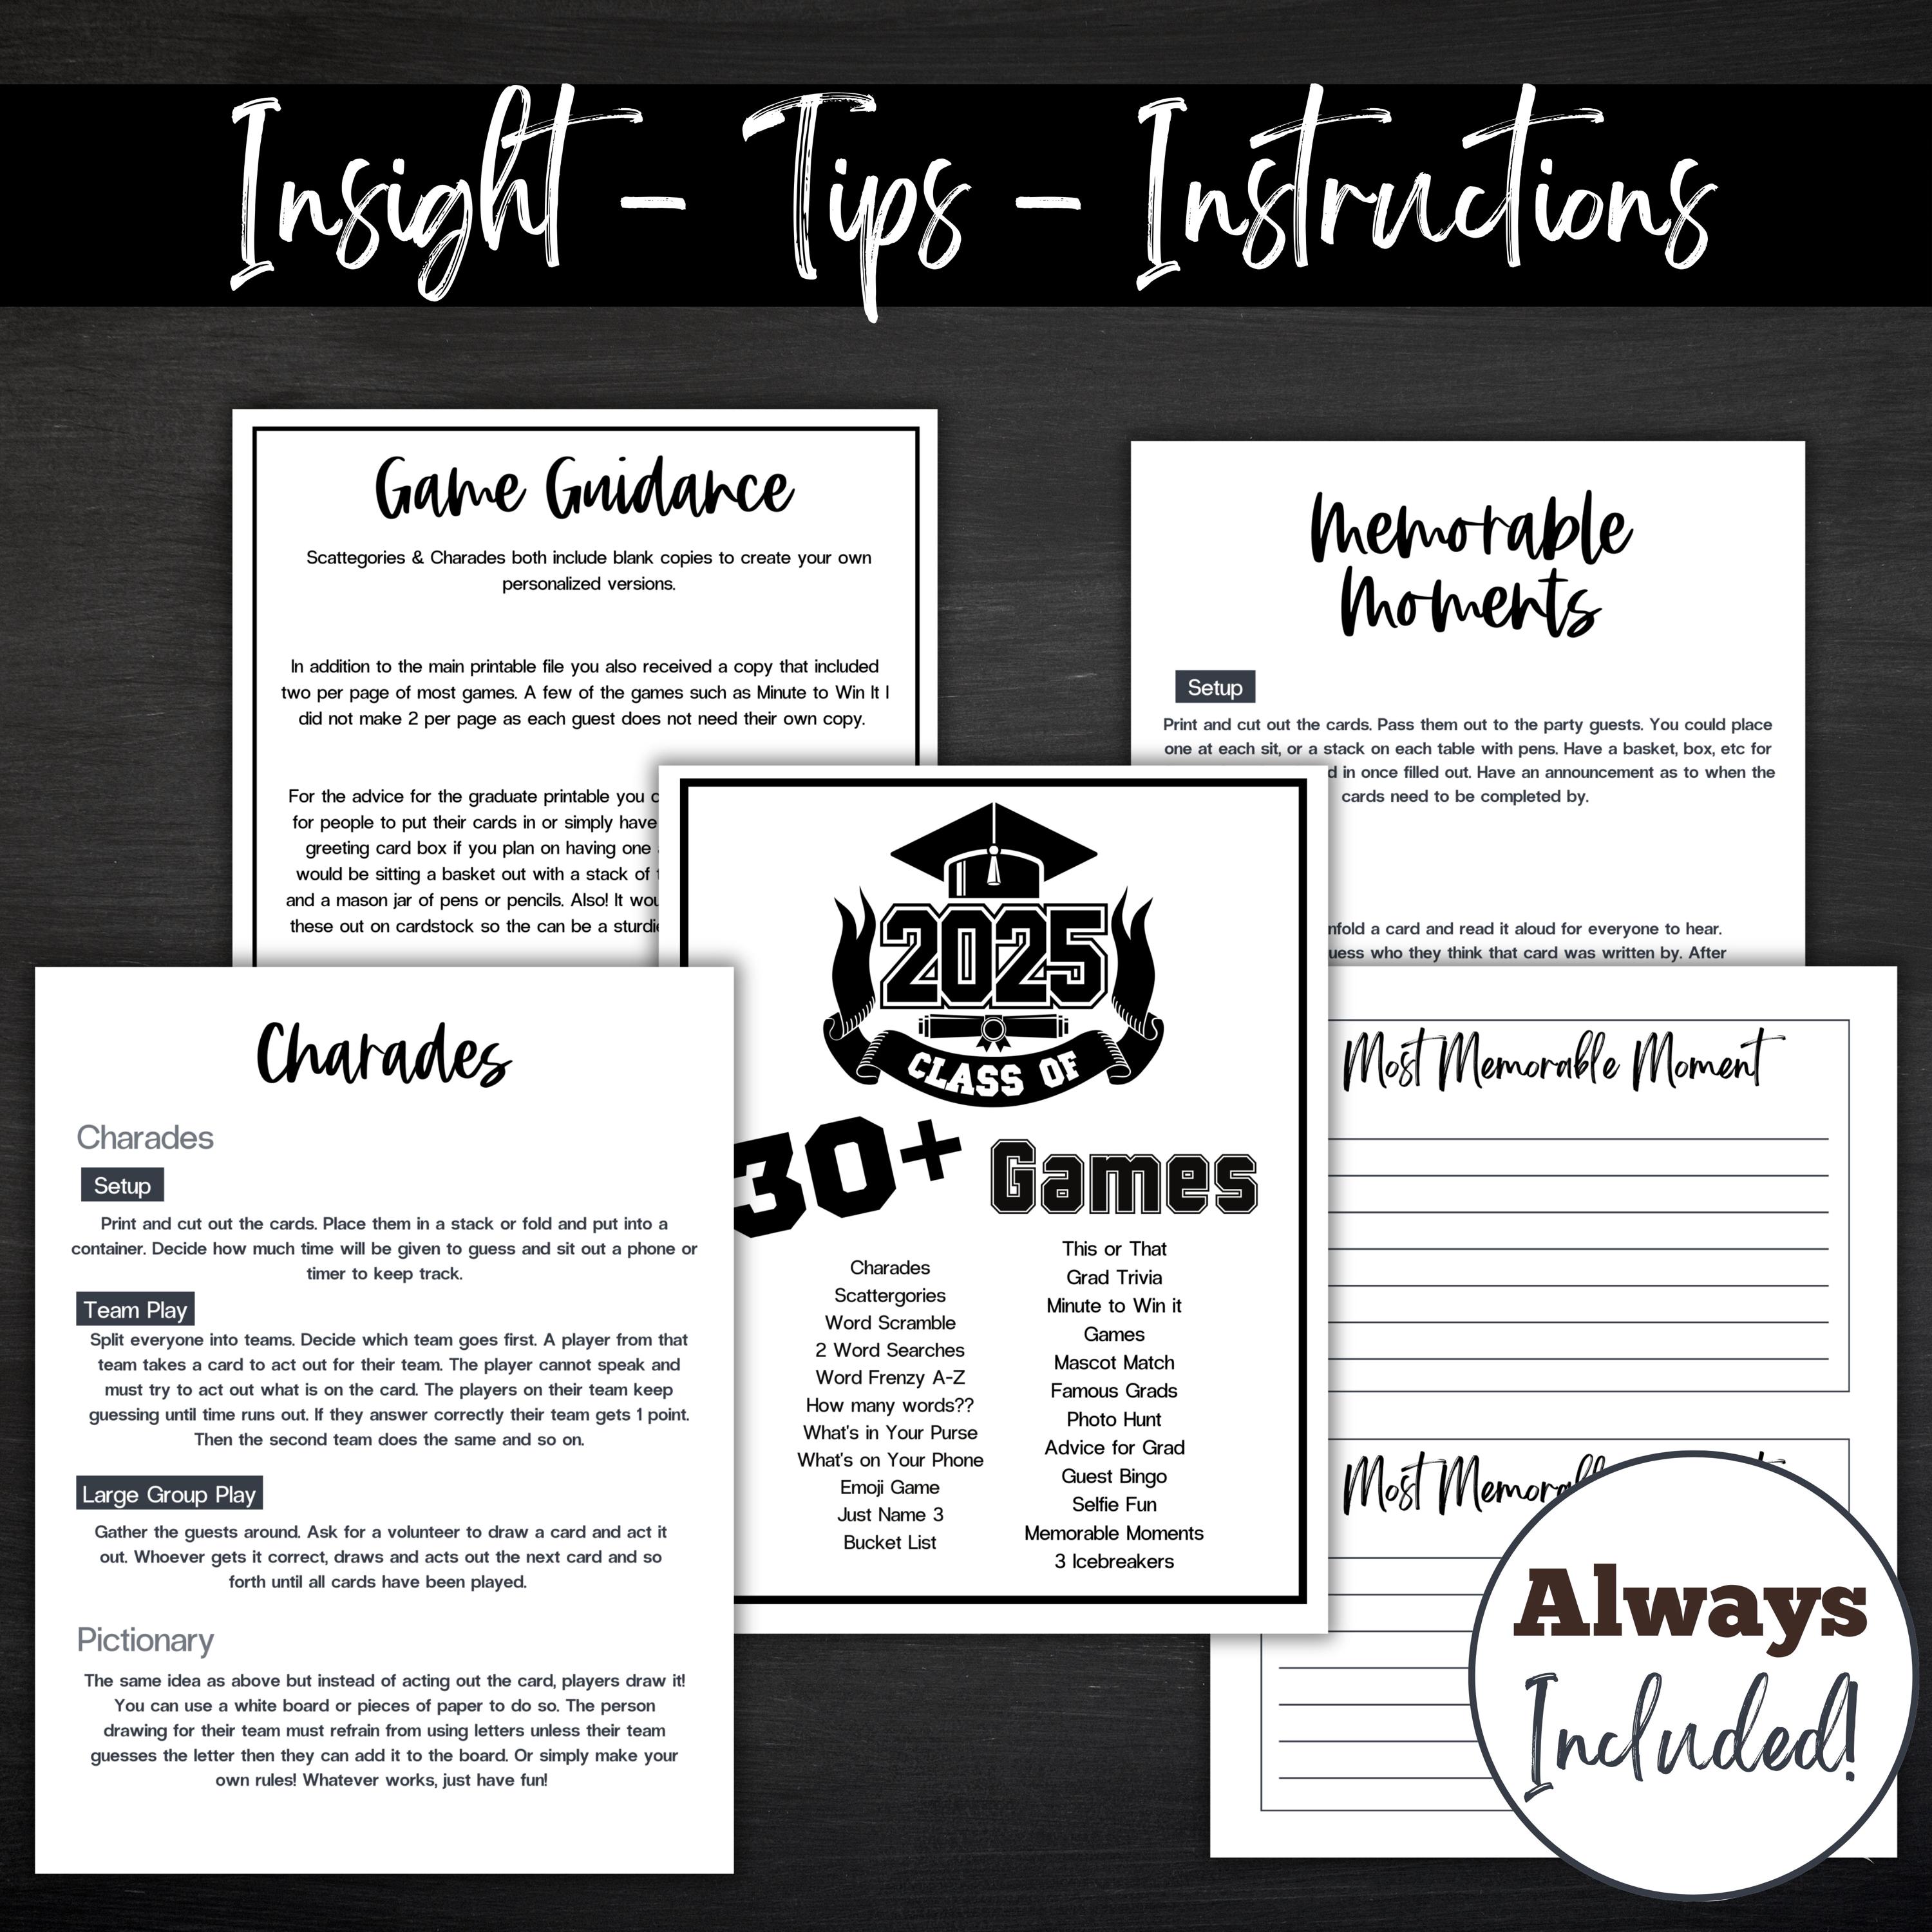 Insight - Tips - Instructions
Game Guidance
Scattegories & Charades both include blank copies to create your own
personalized versions.
In addition to the main printable file you also received a copy that included
two per page of most games. A few of the games such as Minute to Win It I
did not make 2 per page as each guest does not need their own copy.
For the advice for the graduate printable you
for people to put their cards in or simply have
greeting card box if you plan on having one
would be sitting a basket out with a stack of
and a mason jar of pens or pencils. Also! It
these out on cardstock so the can be a
Memorable
Moments
Setup
Print and cut out the cards. Pass them out to the party guests. You could place
one at each sit, or a stack on each table with pens. Have a basket, box, etc for
in once filled out. Have an announcement as to when the
cards need to be completed by.
a card and read it aloud for everyone to hear.
who they think that card was written by. After
2025
CLASS OF
30+ Games
Charades
Scattergories
Word Scramble
2 Word Searches
Word Frenzy A-Z
How many words??
What's in Your Purse
What's on Your Phone
Emoji Game
Just Name 3
Bucket List
This or That
Grad Trivia
Minute to Win it
Games
Mascot Match
Famous Grads
Photo Hunt
Advice for Grad
Guest Bingo
Selfie Fun
Memorable Moments
3 Icebreakers
Charades
Charades
Setup
Print and cut out the cards. Place them in a stack or fold and put into a
container. Decide how much time will be given to guess and sit out a phone or
timer to keep track.
Team Play
Split everyone into teams. Decide which team goes first. A player from that
team takes a card to act out for their team. The player cannot speak and
must try to act out what is on the card. The players on their team keep
guessing until time runs out. If they answer correctly their team gets 1 point.
Then the second team does the same and so on.
Large Group Play
Gather the guests around. Ask for a volunteer to draw a card and act it
out. Whoever gets it correct, draws and acts out the next card and so
forth until all cards have been played.
Pictionary
The same idea as above but instead of acting out the card, players draw it!
You can use a white board or pieces of paper to do so. The person
drawing for their team must refrain from using letters unless their team
guesses the letter then they can add it to the board. Or simply make your
own rules! Whatever works, just have fun!
Most Memorable Moment
Most
Always
Included!